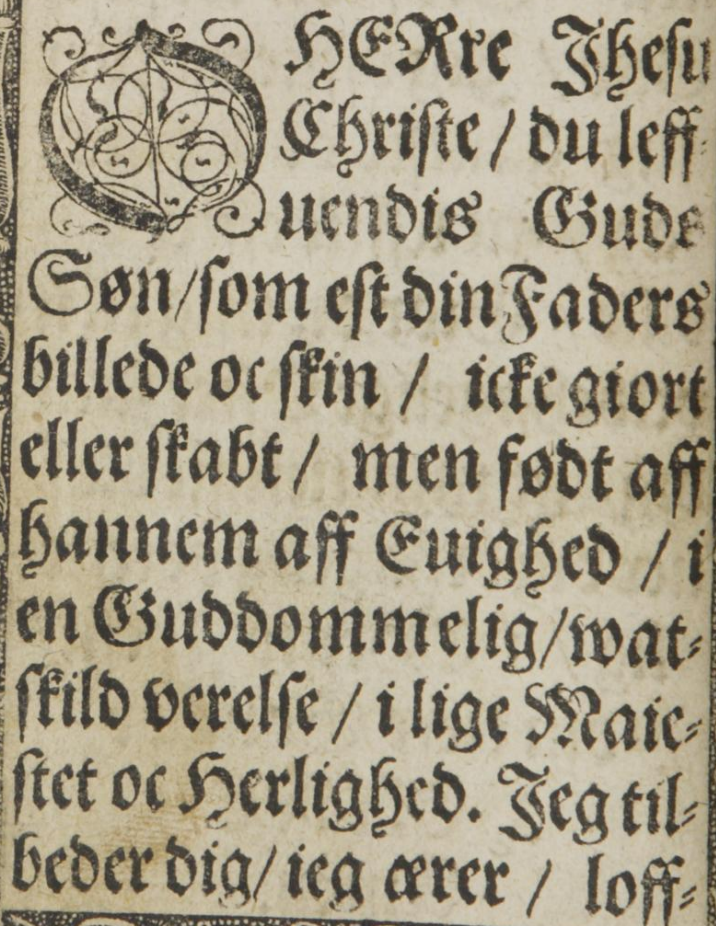 O HERre Jhesu
Christe / du leff-
uendis Guds
Søn/som est din Faders
billede oc skin / icke giort
eller skabt / men født aff
hannem aff Euighed / i
en Guddommelig/wat-
skild verelse / i lige Maie-
stet oc Herlighed. Jeg til-
beder dig/ ieg ærer / loff-